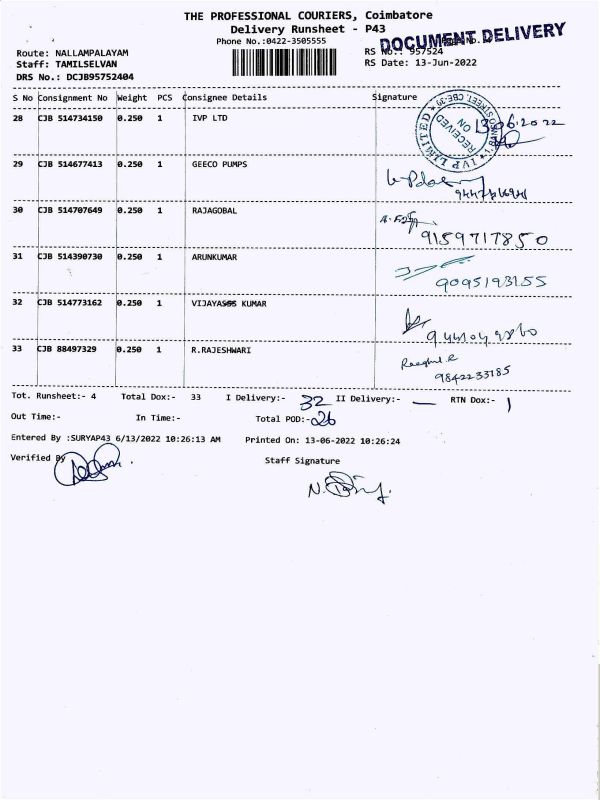 THE PROFESSIONAL COURIERS, Coimbatore
Delivery Runsheet - P43
DOCUMENT DELIVERY
Phone No.:0422-3505555
Route: NALLAMPALAYAM
RS No.: 957524
Staff: TAMILSELVAN
RS Date: 13-Jun-2022
DRS No.: DCJB95752404
S No Consignment No Weight PCS Consignee Details Signature
28 CJB 514734150 0.250 1 IVP LTD
IVP LIMITED
RECEIVED ON
13.06.2022
29 CJB 514677413 0.250 1 GEECO PUMPS
30 CJB 514707649 0.250 1 RAJAGOBAL
9159717850
31 CJB 514390730 0.250 1 ARUNKUMAR
9095193155
32 CJB 514773162 0.250 1 VIJAYASSS KUMAR
33 CJB 88497329 0.250 1 R.RAJESHWARI
9842233185
Tot. Runsheet:- 4 Total Dox:- 33 I Delivery:- 32 II Delivery:- — RTN Dox:- 1
Out Time:- In Time:- Total POD:- 26
Entered By :SURYAP43 6/13/2022 10:26:13 AM Printed On: 13-06-2022 10:26:24
Verified By Staff Signature